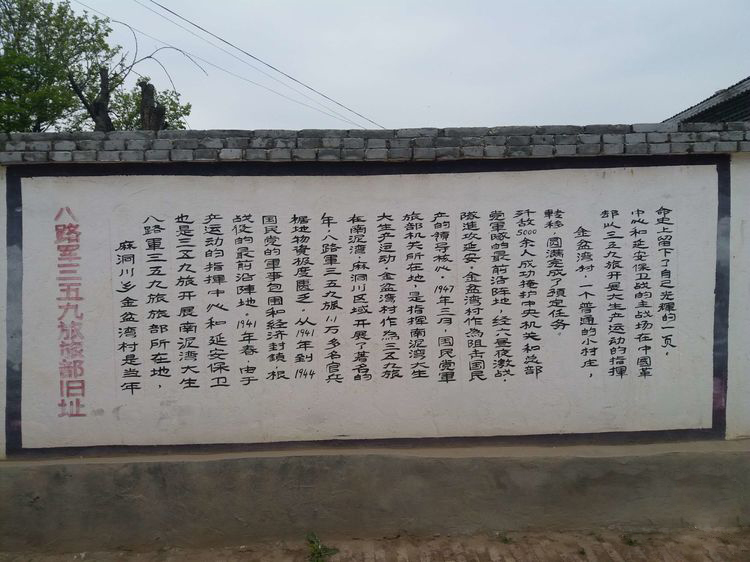 八路军三五九旅旅部旧址
麻洞川乡金盆湾村是当年
八路軍三五九旅旅部所在地，
也是三五九旅开展南泥湾大生
产运动的指揮中心和延安保卫
战役的最前沿陣地。1941年春，由于
国民党的軍事包围和经济封鎖，根
据地物資极度匱乏，从1941年到1944
年，八路軍三五九旅1.1万多名官兵
在南泥湾、麻洞川区域开展了著名的
大生产运动，金盆湾村作為三五九旅
旅部机关所在地，是指揮南泥湾大生
产的領导核心。1947年三月，国民党軍
隊進攻延安，金盆湾村作為阻击国民
党軍隊的最前沿阵地，经六昼夜激战，
歼敌5000余人成功掩护中央机关和总部
轉移，圆满完成了預定任务
金盆湾村，一个普通的小村庄，
却以三五九旅开展大生产运动的指揮
中心和延安保卫战的主战场在中國革
命史上留下了自己光輝的一页。